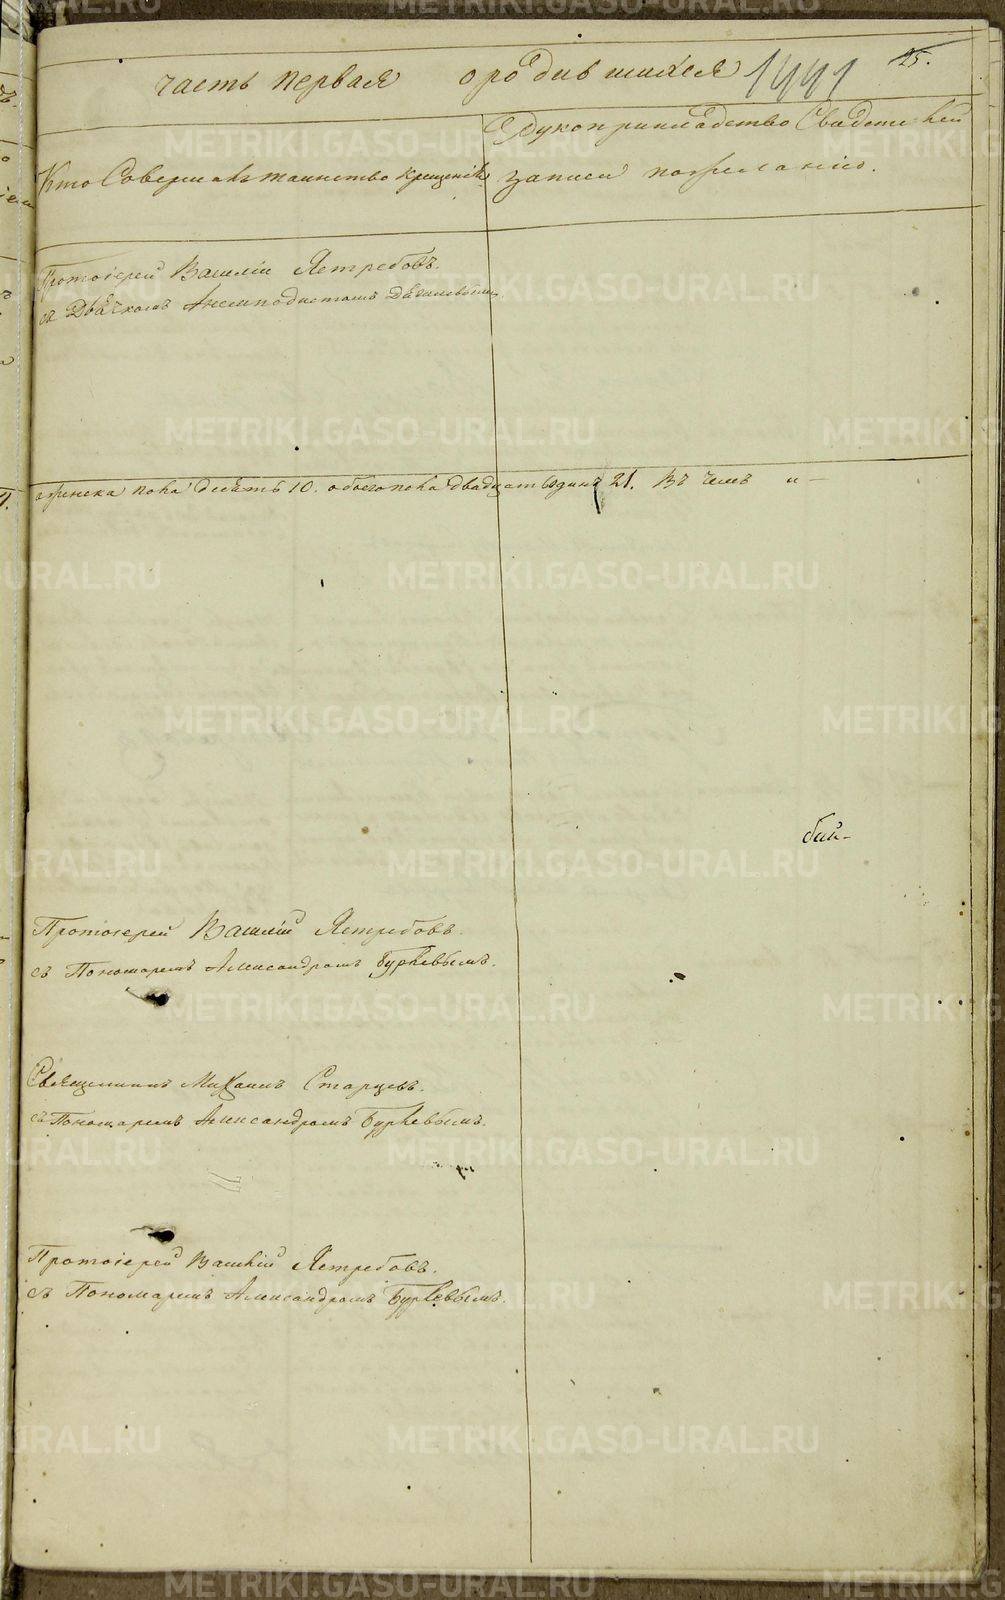 часть первая о родившихся 1441 25.
Кто Совершалъ таинство крещенія
Рукоприкладство Свидетелей
записи по желанію.
Протоіерей Василіи Ястребовъ.
съ Дьячкомъ Анемподистомъ
а женска пола десять 10. обоего пола двадцать одинъ 21. Въ чемъ и —
бий-
Протоіерей Василій Ястребовъ.
съ Пономаремъ Александромъ Бурлевымъ.
Священникъ Михаилъ Старцевъ.
съ Пономаремъ Александромъ Бурлевымъ.
Протоіерей Василій Ястребовъ.
съ Пономаремъ Александромъ Бурлевымъ.
METRIKI.GASO-URAL.RU